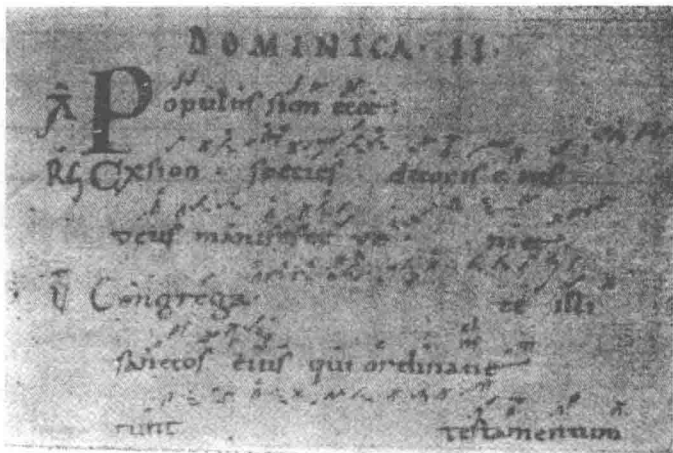 DOMINICA · II ·
A Populus sion ecce:
RG Exsion · species decoris eius
deus manifeste ve niet
V Congrega te illi
sanctos eius qui ordinave
runt testamentum